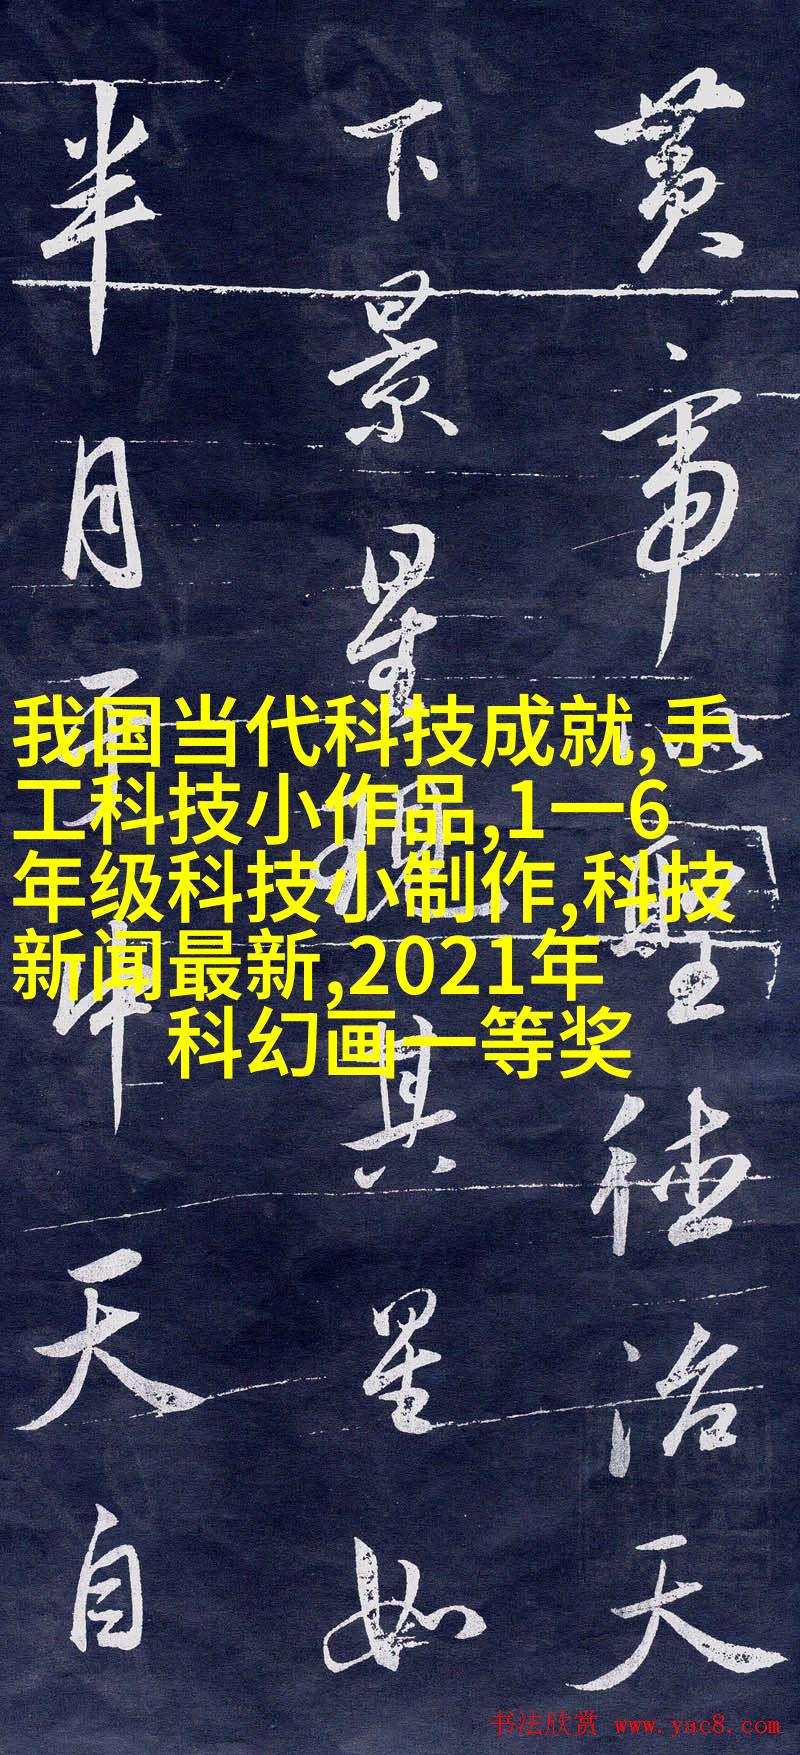 黄帝以聖德治天
下景星現其星如
半月天自
我国当代科技成就,手
工科技小作品,1一6
年级科技小制作,科技
新闻最新,2021年
科幻画一等奖
书法欣赏 www.yac8.com